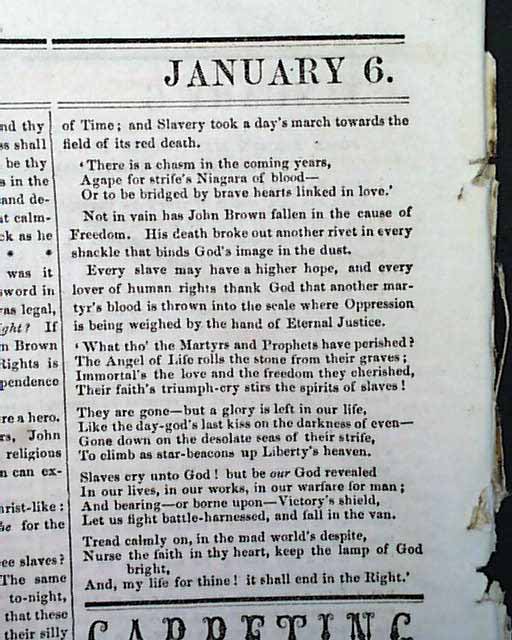 JANUARY 6.
nd thy
s shall
be thy
s in the
and de-
t calm-
ck as he
* *
was it
sword in
as legal,
ight? If
n Brown
Rights is
pendence
re a hero.
rs, John
religious
n can ex-
hrist-like:
he for the
ee slaves?
The same
to-night,
that these
their silly
of Time; and Slavery took a day's march towards the
field of its red death.
‘There is a chasm in the coming years,
Agape for strife's Niagara of blood—
Or to be bridged by brave hearts linked in love.’
Not in vain has John Brown fallen in the cause of
Freedom. His death broke out another rivet in every
shackle that binds God's image in the dust.
Every slave may have a higher hope, and every
lover of human rights thank God that another mar-
tyr's blood is thrown into the scale where Oppression
is being weighed by the hand of Eternal Justice.
‘What tho' the Martyrs and Prophets have perished?
The Angel of Life rolls the stone from their graves;
Immortal's the love and the freedom they cherished,
Their faith's triumph-cry stirs the spirits of slaves!
They are gone—but a glory is left in our life,
Like the day-god's last kiss on the darkness of even—
Gone down on the desolate seas of their strife,
To climb as star-beacons up Liberty's heaven.
Slaves cry unto God! but be our God revealed
In our lives, in our works, in our warfare for man;
And bearing—or borne upon—Victory's shield,
Let us fight battle-harnessed, and fall in the van.
Tread calmly on, in the mad world's despite,
Nurse the faith in thy heart, keep the lamp of God
bright,
And, my life for thine! it shall end in the Right.’
CARPETING